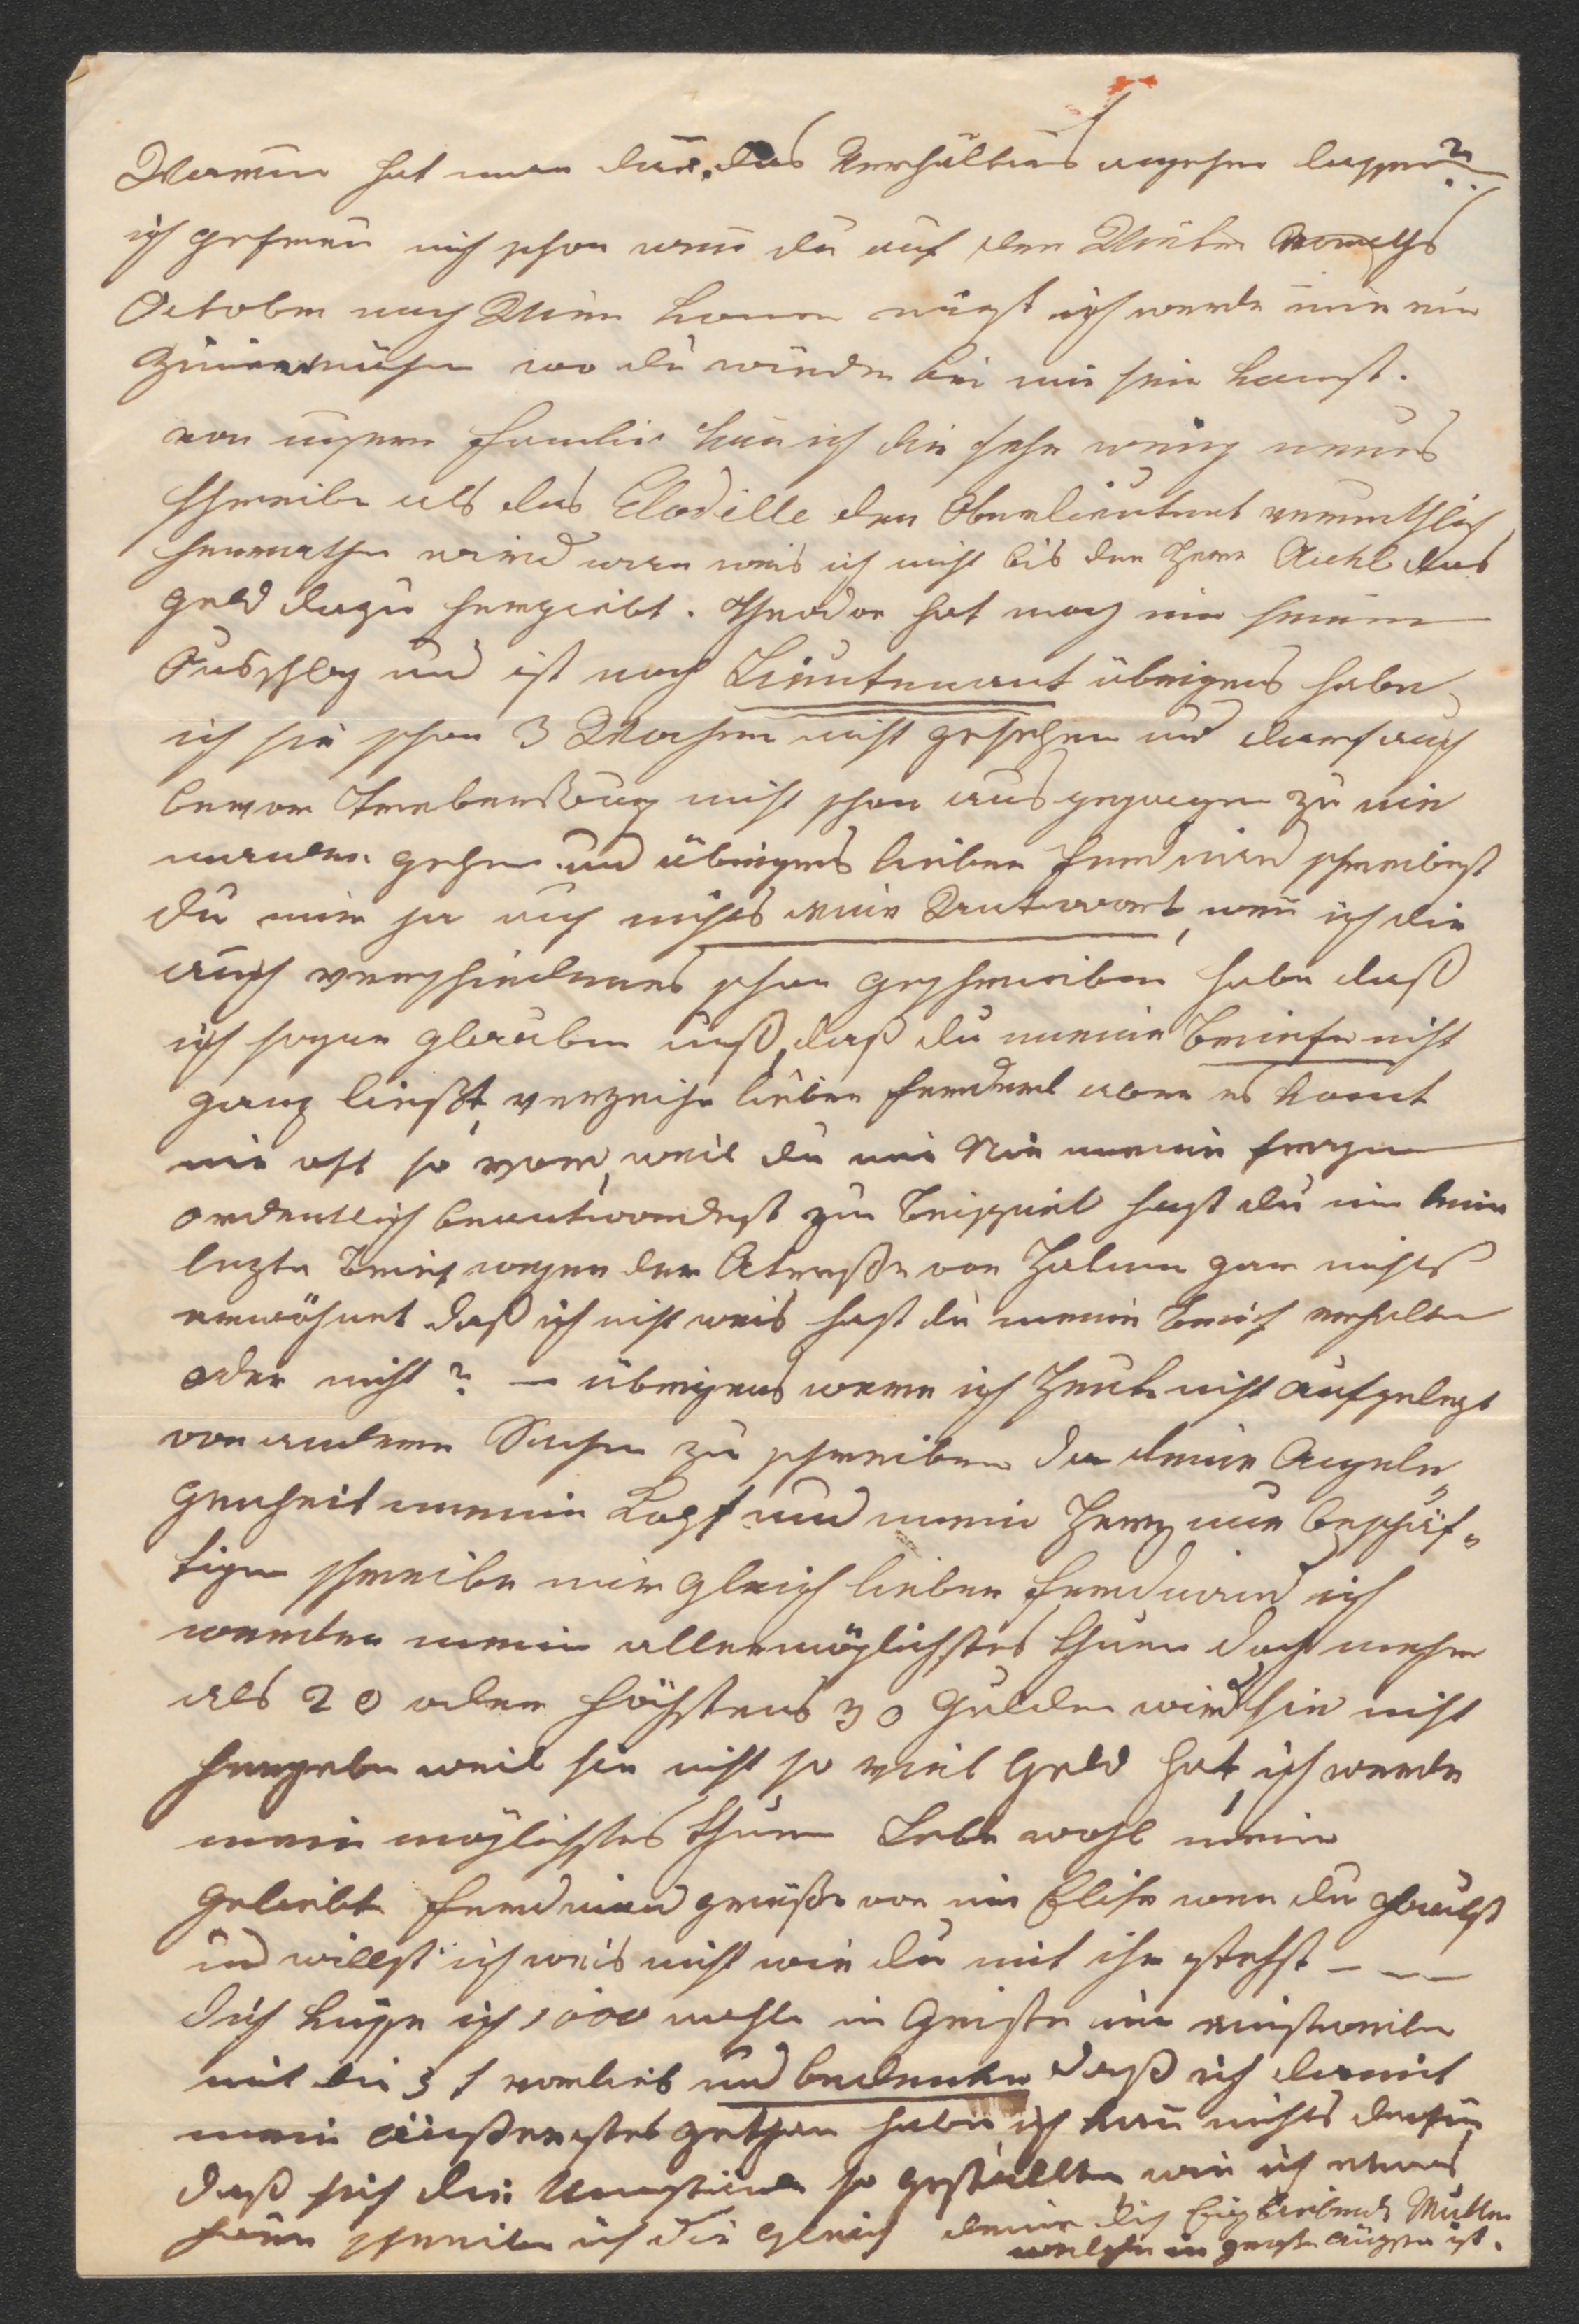 Warum hat man dañ das Verhältnis angehen lassen?
ich gefreue mich schon wenn du auf den Winter
October nach Wien komen wirst ich werde mir ein
Zimer wo du wieder bei mir sein kannst.
von unserer Familie kan ich dir sehr wenig neues
schreiben als das Elodille den Oberlieutnant vermuthlich
heurathen wird wan weis ich nicht bis der Herr das
Geld dazu hergiebt. Theodor hat noch im seinen
Ausschlag und ist noch Lieutenant übrigens habe
ich sie schon 3 Wochen nicht gesehen und darf auch
bevor nicht schon ausgezogen zu nie
manden gehen. und übrigens lieber Ferdinand schreibst
du mir ja auch nichts keine Antwort, wen̄ ich dir
auch verschiedenes schon geschrieben habe daß
ich sogar glauben muß, daß du meine Briefe nicht
ganz ließt, verzeihe lieber Ferdinand aber es komt
mir oft so vor, weil du mir Nie meine fragen
ordentlich beantwordest zum Beispiel hast du im dein
lezten Brief wegen der Atresße von gar nichts
erwähnet daß ich nicht weis hast du meine Brief erhalten
oder nicht? — übrigens were ich Heute nicht aufgelegt
von anderen Sachen zu schreiben da deine Angele„
genheit meinen Kopf und mein Herz nur beschäf„
tigen schreibe mir gleich lieber Ferdinand ich
werde mein allermöglichstes thuen doch mehr
als 20 oder höchstens 30 Gulden wird sie nicht
hergeben weil sie nicht so viel Geld hat, ich werde
mein möglichstes thuen Lebe wohl mein
geliebter Ferdinand grüße von mir Elise wen du glaubst
und willst ich weis nicht wie du mit ihr stehst — — —
dich küsse ich 1000 mahle im Geiste nim einstweilen
mit die 5 f vorlieb und bedenke daß ich damit
mein äüßerstes gethan habe ich kan̄ nichts dafür,
daß sich die Umstände so gestallten wie ich etwas
höre schreibe ich dir gleich deine dich Ewig liebende Mutter
welche in großer ängsten ist.